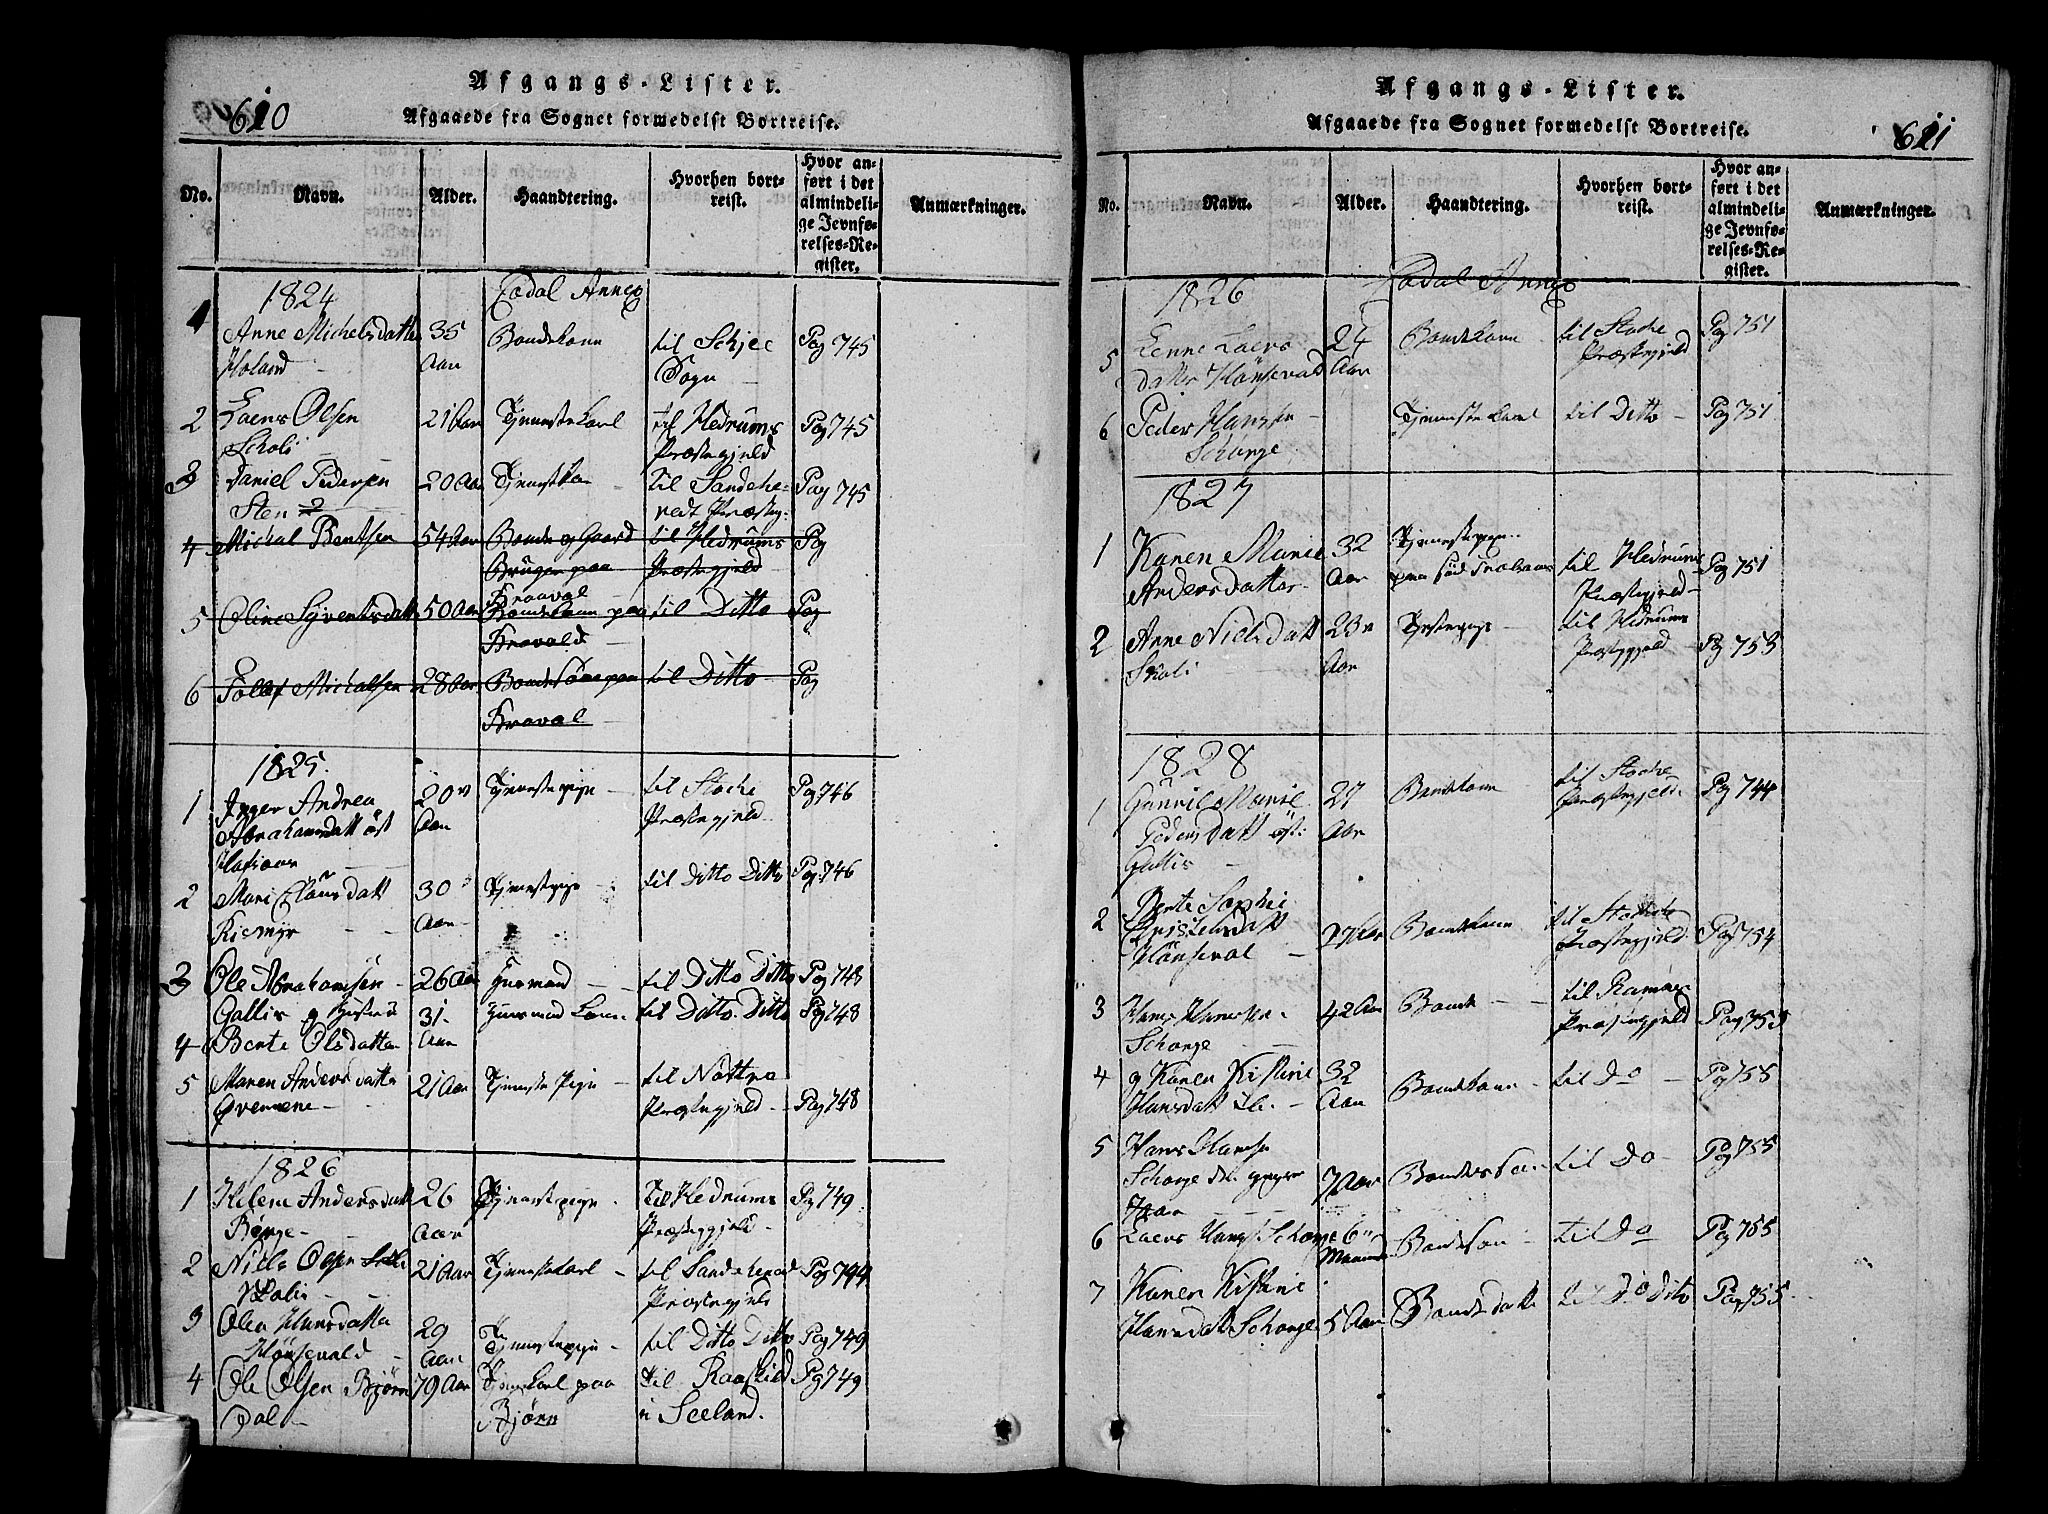 610
Afgangs-Lister.
Afgaaede fra Sognet formedelst Bortreise.
No. Navn. Alder. Haandtering. Hvorhen bortreist. Hvor anført i det almindelige Jevnførelses-Register. Anmærkninger.
1824 Eodal Annex
1 Anne Michelsdatter 35 Bondekone til Schjee Pag 745
Holand Aar Sogn
2 Laers Olsen 21 Aar Tjenestekarl til Hedrums Pag 745
Skoli Præstegjeld
3 Daniel Pedersen 20 Aar til Sandehe- Pag 745
Sten redt Præstegj:
4 Michel Bentsen 54 Aar Bonde og Gaard til Hedrums Pag
Bruger paa Præstegjeld
Kraaval
5 Oline Syvertsdatt 50 Aar Bondekone paa til Ditto Pag
Kravald
6 Tollef Michelsen 28 Aar Bondesøn paa til Ditto Pag
Kraval
1825
1 Inger Andrea 20 Tjenestepige til Stocke Pag 746
Abrahamsdatt øst Aar Præstegjeld
2 Mari 30 Tjenestepige til Ditto Ditto Pag 746
Kiemyr Aar
3 Ole Abrahamsen 26 Aar Huusmand til Ditto Ditto Pag 748
Gallis og Hustru 31 Huusmand Kone til Ditto Ditto Pag 748
4 Berte Olsdatter Aar
5 Maren Andersdatter 21 Aar Tjeneste Pige til Nøttrø
Øvernene Præstegjeld Pag 748
1826
1 Helene Andersdatt 26 Tjenestepige til Hedrums Pag 749
Børge Aar Præstegjeld
2 Niels Olsen 21 Aar Tjenestekarl til Sandeherred Pag 744
Præstegjeld
3 Olea Hansdatter 29 Tjenestepige til Ditto Ditto Pag 749
Hønsevald Aar
4 Ole Olsen Bjørn 79 Aar paa til Pag 749
Dal Bjørn i Seeland.
611
Afgangs-Lister.
Afgaaede fra Sognet formedelst Bortreise.
No. Navn. Alder. Haandtering. Hvorhen bortreist. Hvor anført i det almindelige Jevnførelses-Register. Anmærkninger.
1826 Eodal Annex
5 Lenne Laers 24 Bondekone til Stocke Pag 751
datter Hønsevald Aar Præstegjeld
6 Peder Hansen Tjenestekarl til Ditto Pag 751
Schorge
1827
1 Karen Marie 32 Tjenestepige til Hedrums Pag 751
Andersdatter Aar paa Præstegjeld
2 Anne Nielsdatt 23 til Hedrums Pg 753
Skoli Aar Præstegjeld
1828
1 Gunnil Marie 27 Bondekone til Stocke Pg 744
Pedersdatt øst: Aar Præstegjeld
Gallis
2 Berte Sophie
Christensdatt 27 Aar Bondekone til Stocke Pag 754
Hønseval Præstegjeld
3 Hans Hansen 42 Aar Bonde til Ramnæs
Schorge Præstegjeld Pag 755
4 og Karen Kistine 32 Bondekone til Do Pg 755
Hansdatt Aar
5 Hans Hansen
Schorge 7 Aar Bondesøn til Do Pag 755
6 Laers Hansen Schorge 6 Bondesøn til Do Pag 755
7 Karen Kistine til Do Ditto Pag 755
Hansdatt Schorge 5 Aar Bondedatter